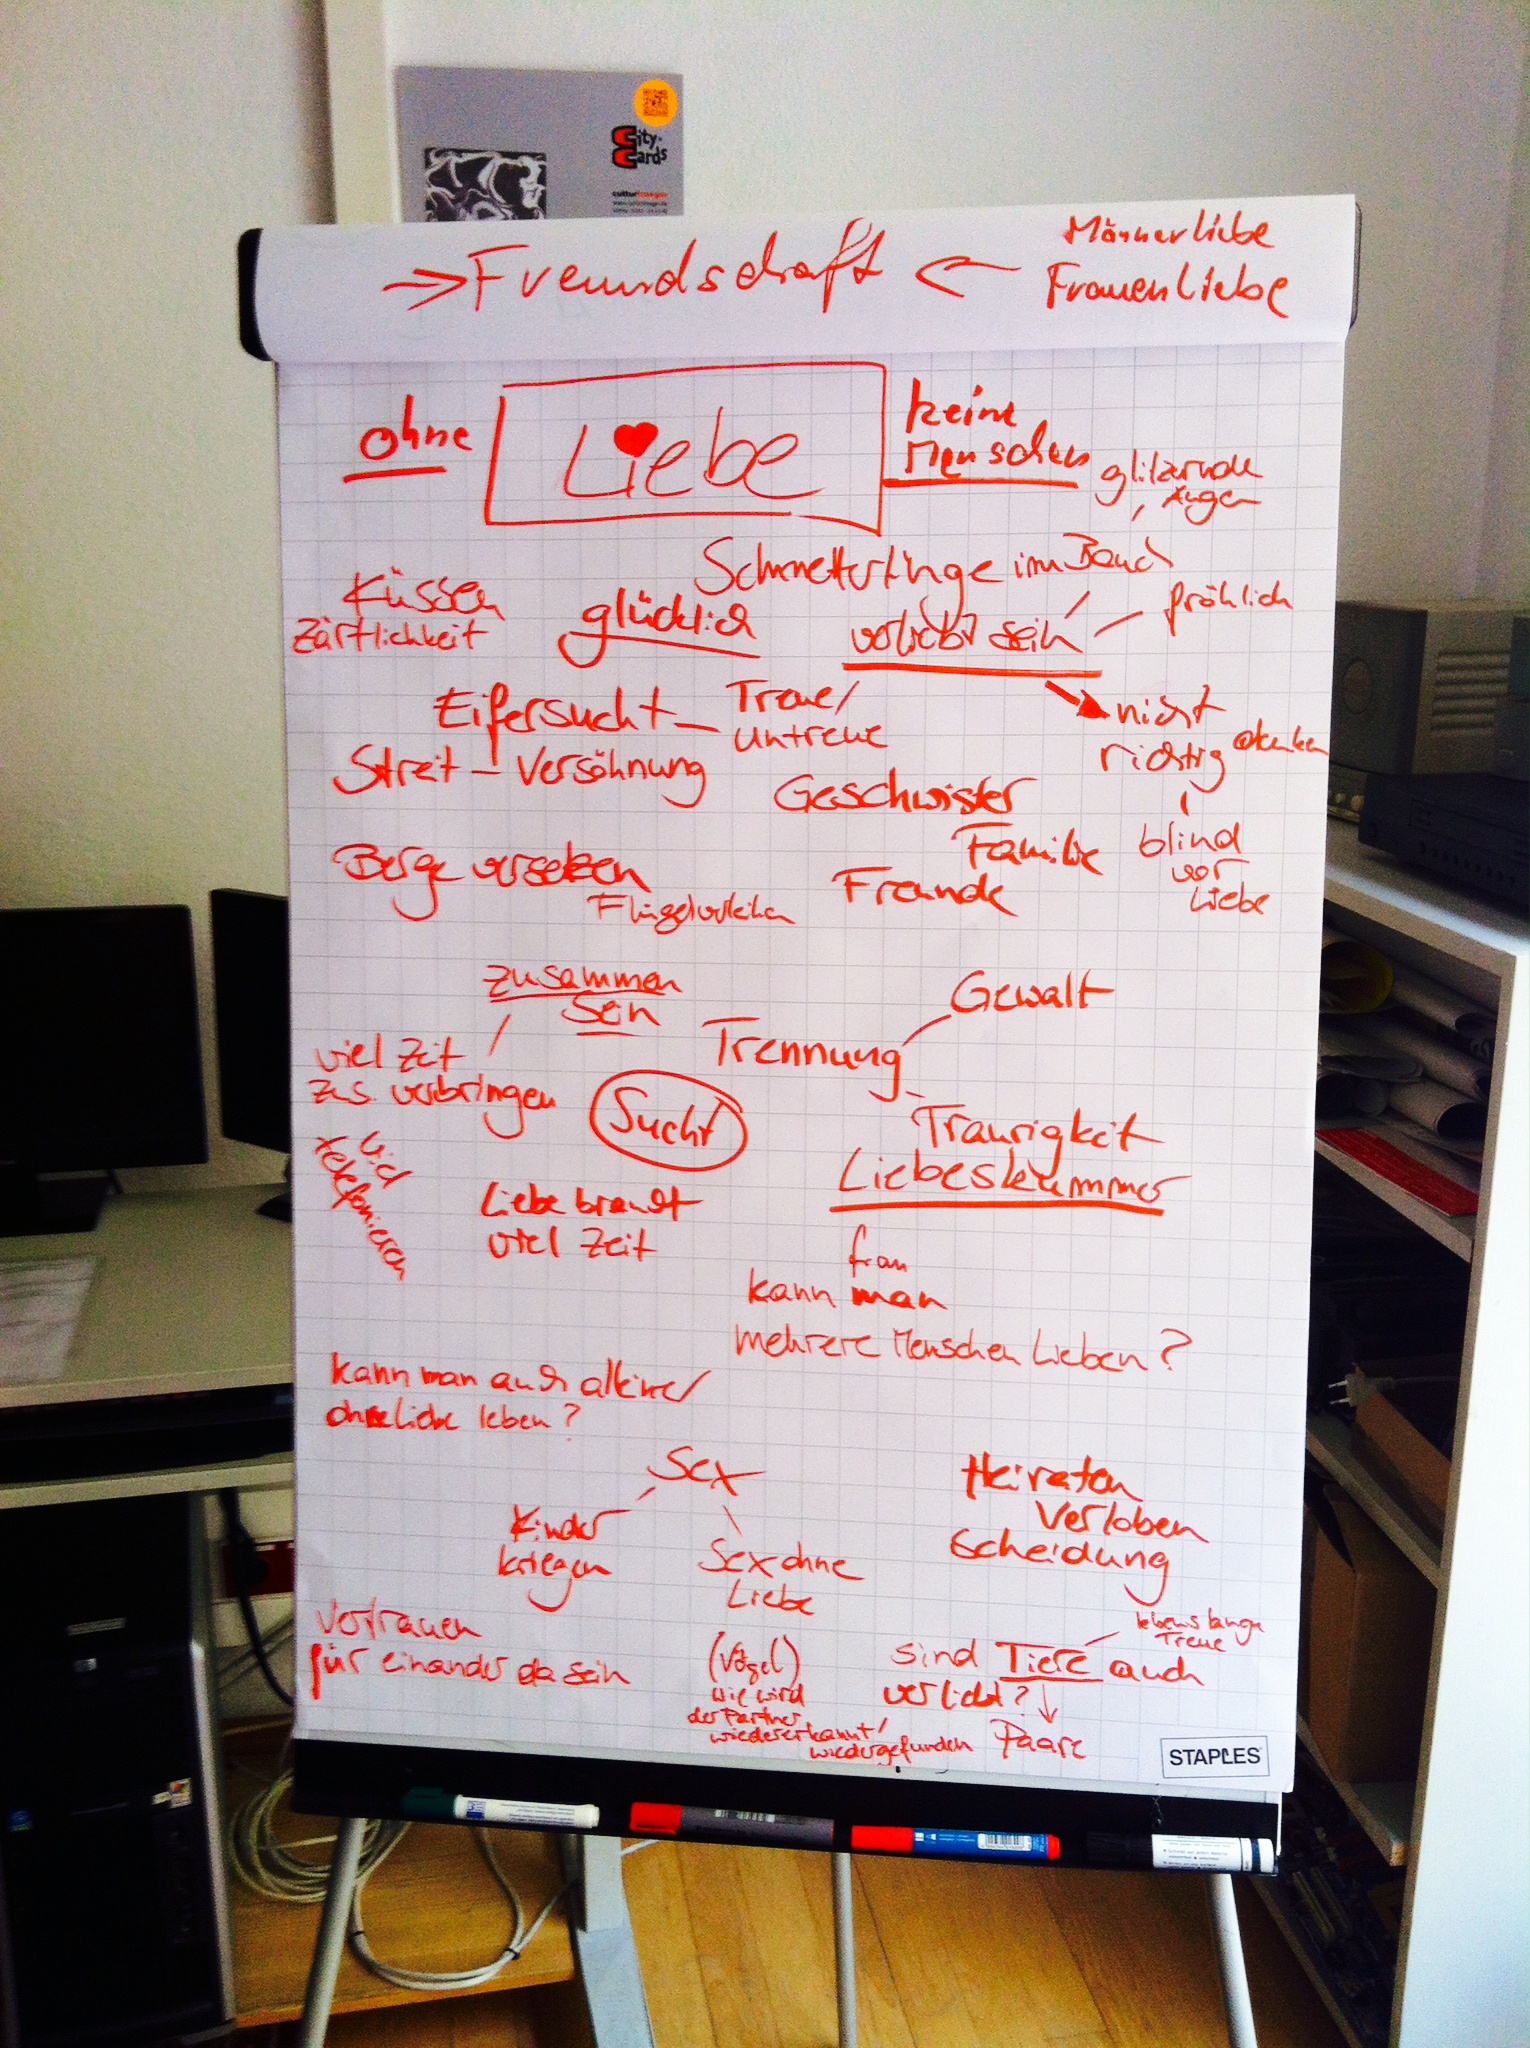 City-
Cards
→ Freundschaft ←
Männerliebe
Frauenliebe
ohne
Liebe
keine
Menschen
glitzernde
Augen
Schmetterlinge im Bauch
Küssen
Zärtlichkeit
glücklich
verliebt sein
fröhlich
Eifersucht – Treue/
Untreue
nicht
richtig denken
Streit – Versöhnung
Geschwister
Familie
Freunde
blind
vor
Liebe
Berge versetzen
Flügel verleihen
zusammen
sein
Gewalt
Trennung
viel Zeit
zus. verbringen
Sucht
Traurigkeit
Liebeskummer
viel
telefonieren
Liebe braucht
viel Zeit
frau
kann man
mehrere Menschen lieben?
kann man auch alleine/
ohne Liebe leben?
Sex
Kinder
kriegen
Sex ohne
Liebe
Heiraten
Verloben
Scheidung
Vertrauen
für einander da sein
(Vögel)
wie wird
der Partner
wiedererkannt/
wiedergefunden
lebenslange
Treue
sind Tiere auch
verliebt?
Paare
STAPLES